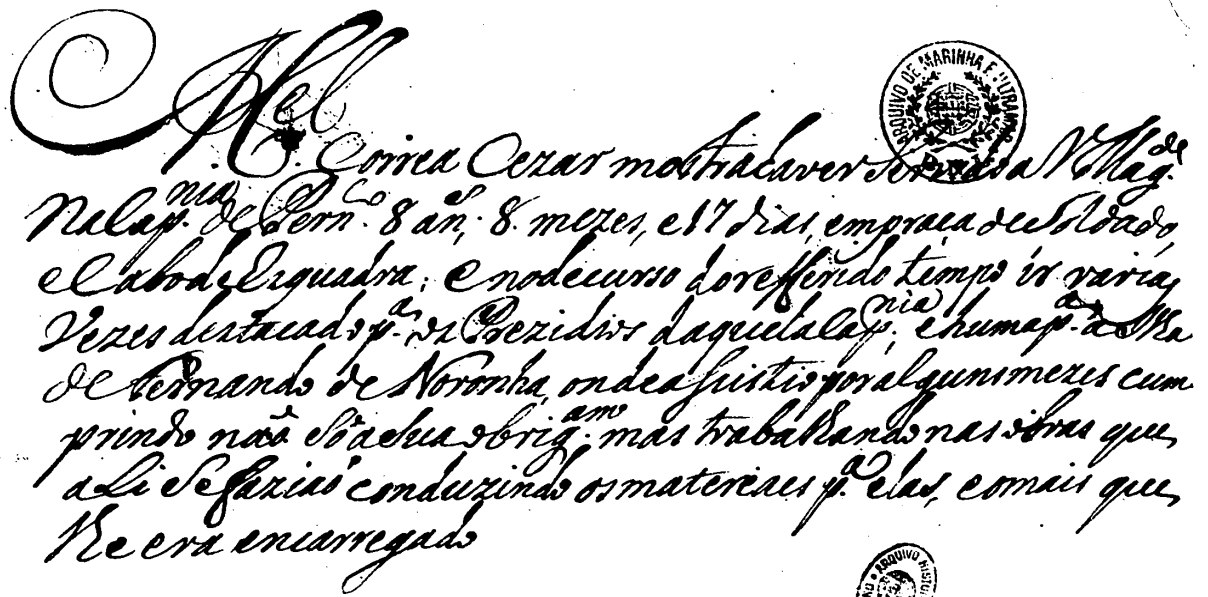 M.el Correa Cezar mostra haver servido a V. Mag.de
Na Cap.nia de Pern.co 8 an.s, 8. mezes, e 17 dias, em praça de Soldado,
e Cabo de Esquadra; e no decurso do refferido tempo ir varias
Vezes destacado p.a os Prezidios daquela Cap.nia, e huma p.a a Ilha
de Fernando de Noronha, onde asistio por alguns mezes cum
prindo não Só a sua obrig.am mas trabalhando nas obras que
aLi Se fazião conduzindo os matereaes p.a elas, e o mais que
lhe era encarregado
ARQUIVO DE MARINHA E ULTRAMAR
ARQUIVO HIST